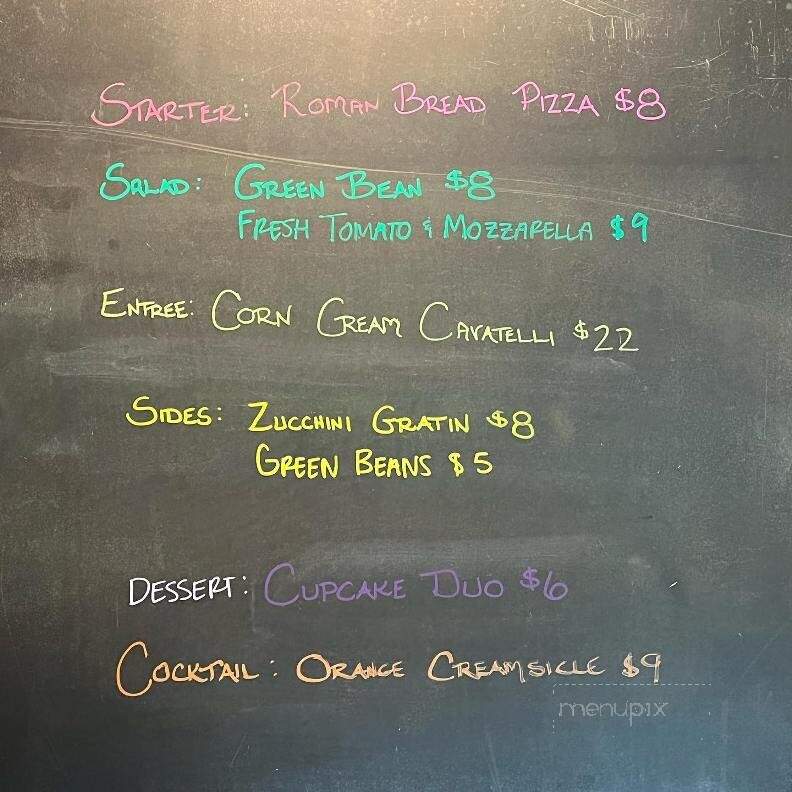 STARTER: ROMAN BREAD PIZZA $8
SALAD: GREEN BEAN $8
FRESH TOMATO & MOZZARELLA $9
ENTREE: CORN CREAM CAVATELLI $22
SIDES: ZUCCHINI GRATIN $8
GREEN BEANS $5
DESSERT: CUPCAKE DUO $6
COCKTAIL: ORANGE CREAMSICLE $9
menupix